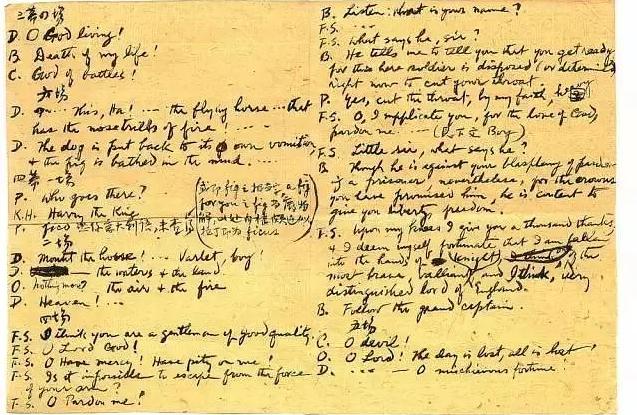 三幕の場
D. O God living!
B. Death of my life!
C. God of battles!
六場
D. ... This, Ha! ... the flying horse ... that
has the nosetrills of fire! ...
D. The dog is put back to its own vomition
& the pig is bathed in the mud ....
四幕 一場
P. Who goes there?
K.H. Harry the King
P. fico
二場
D. Mount the horse! ... Varlet, boy!
D. the waters & the land.
O. nothing more? the air & the fire
D. Heaven! ...
四場
F.S. I think you are a gentleman of good quality.
F.S. O Lord Good!
F.S. O Have mercy! Have pity on me!
F.S. Is it impossible to escape from the force
of your arm?
F.S. O Pardon me!
B. Listen: What is your name?
F.S. ....
F.S. What says he, sir?
B. He tells me to tell you that you get ready
for this here soldier is disposed (or determined)
right now to cut your throat.
P. Yes, cut the throat, by my faith,
F.S. O, I supplicate you, for the love of God,
pardon me ... Boy)
F.S. Little sir, what says he?
B. Though he is against your blasphemy of pardon
of a prisoner, nevertheless, for the crowns
you have promised him, he is content to
give you liberty freedom.
F.S. Upon my knees I give you a thousand thanks,
& I deem myself fortunate that I am fallen
into the hands of a (knight), of the
most brave, valliant, and I think, very
distinguished lord of England.
B. Follow the grand captain.
五場
C. O devil!
O. O Lord! The day is lost, all is lost!
D. .... — O mischievous fortune!